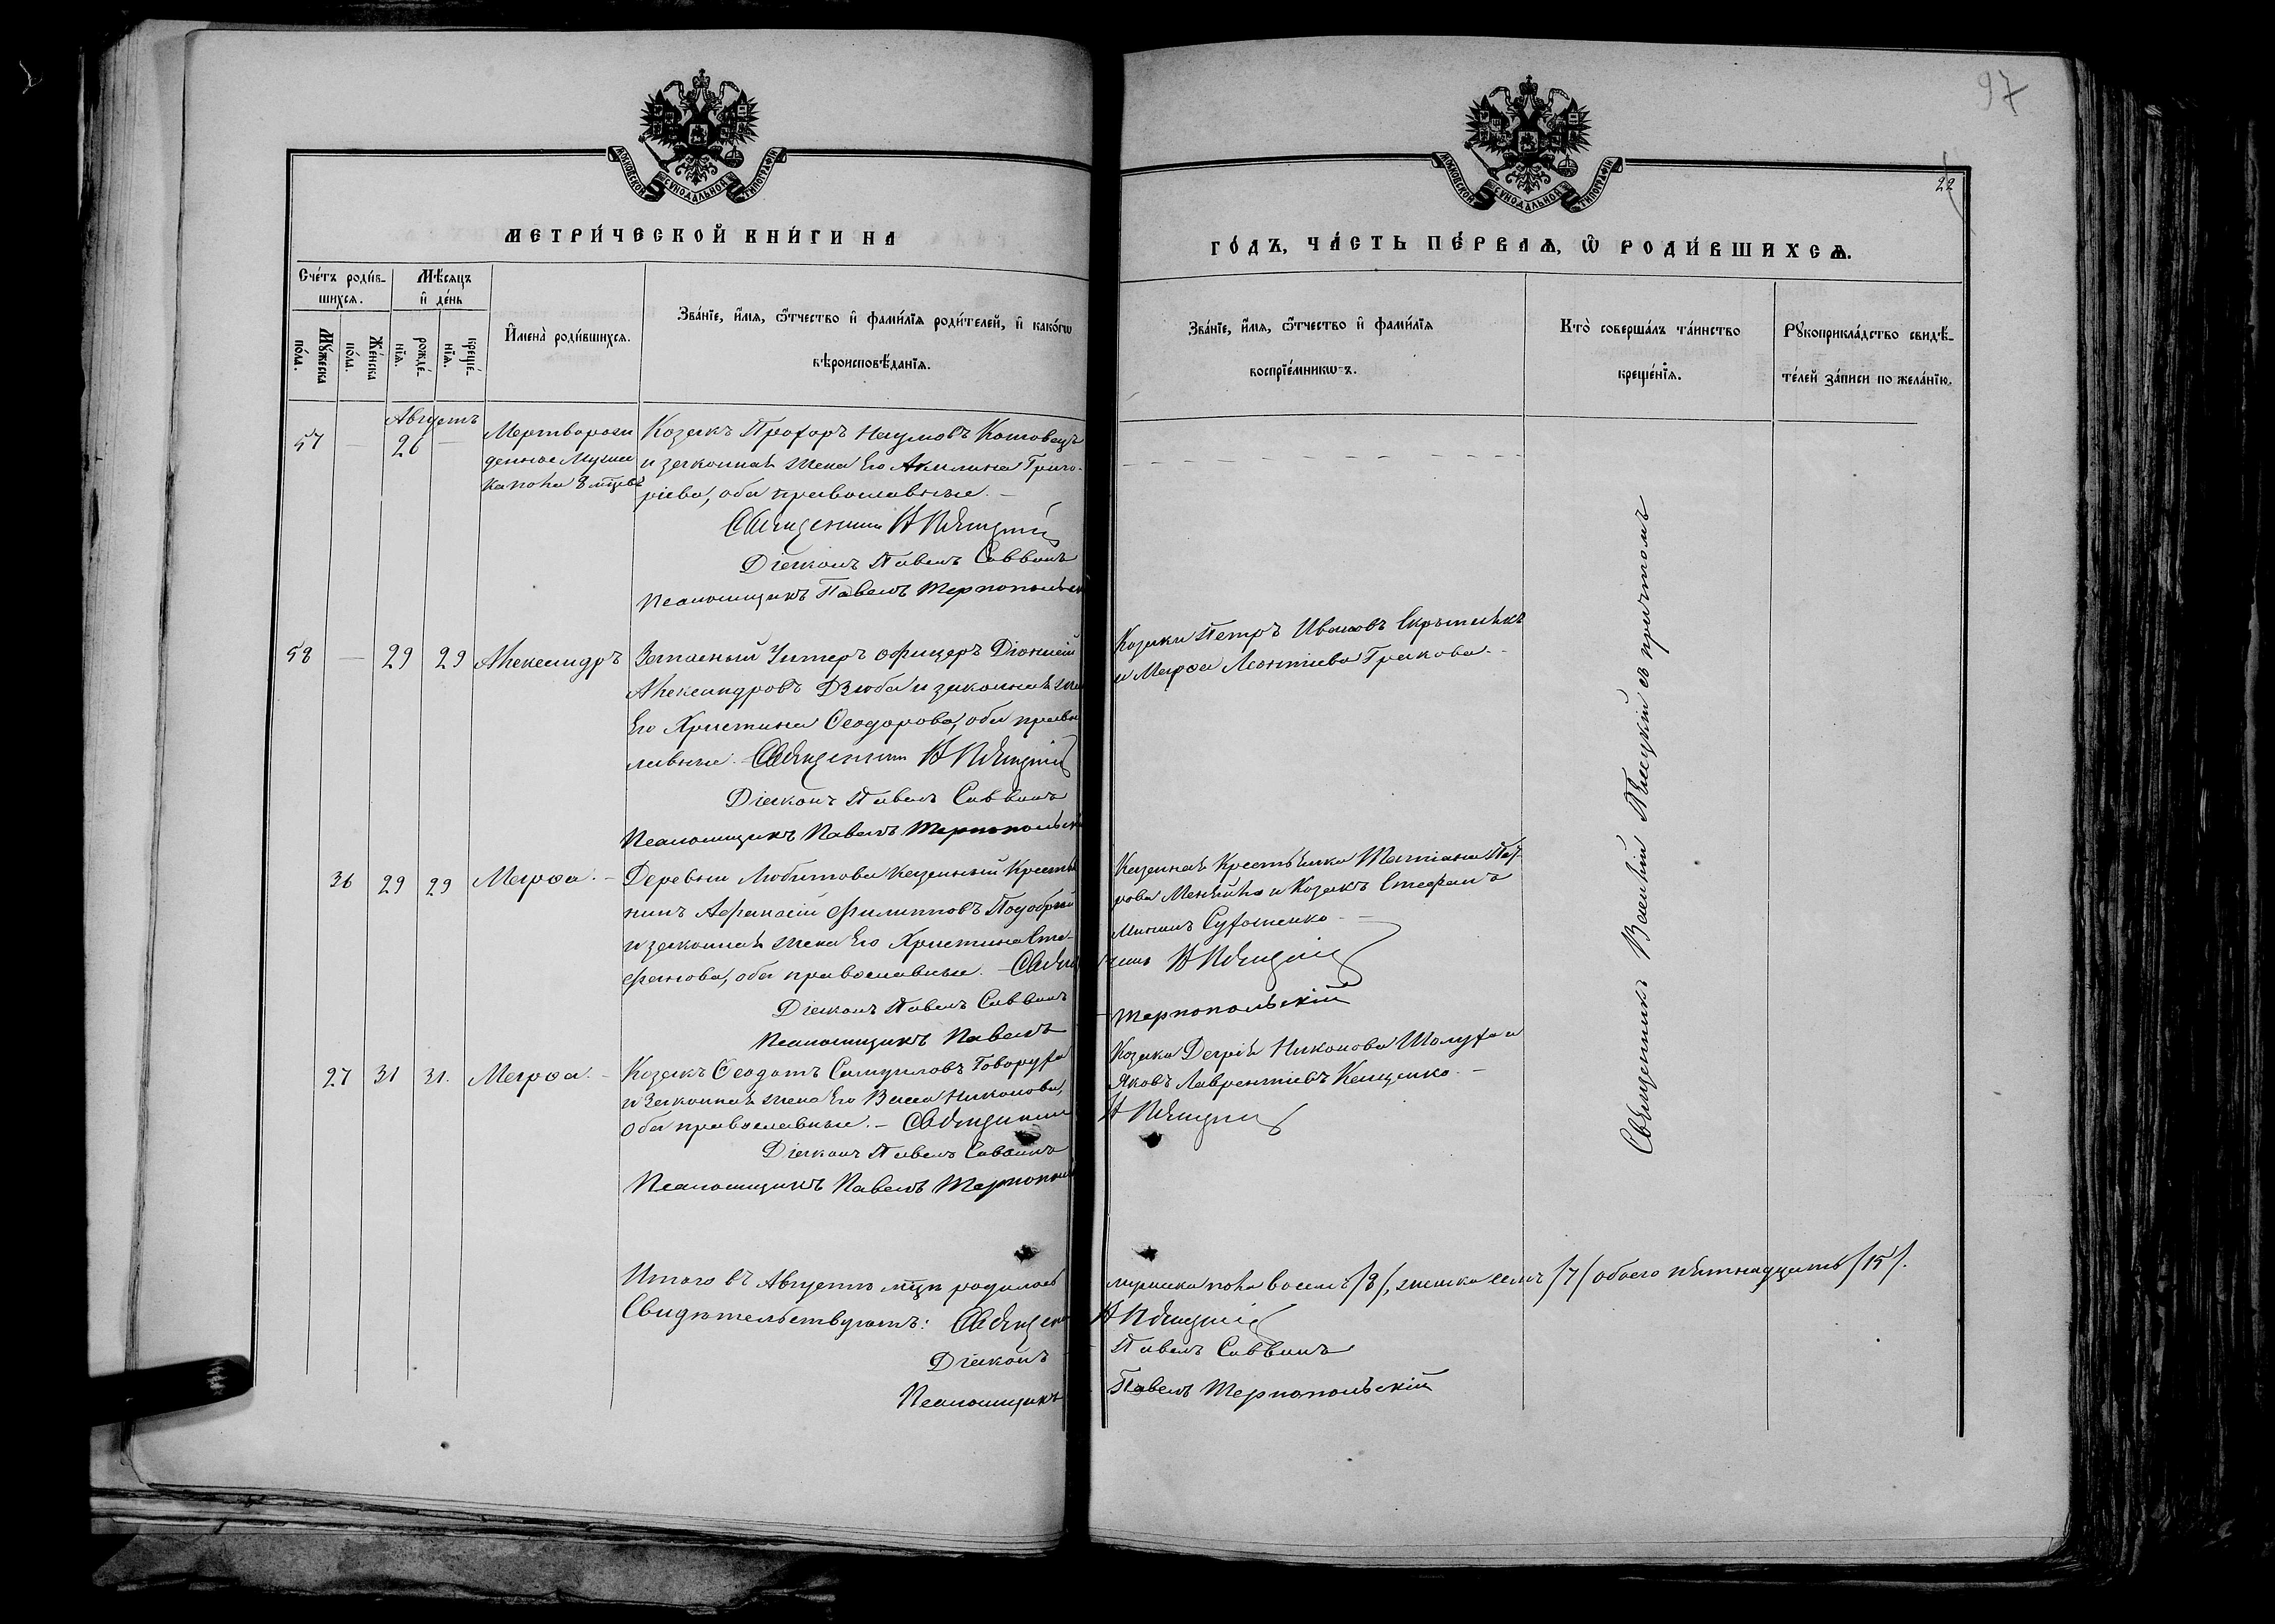 97
МОСКОВСКОЙ СѴНОДАЛЬНОЙ ТИПОГРАФІИ
МОСКОВСКОЙ СѴНОДАЛЬНОЙ ТИПОГРАФІИ
22
МЕТРИ́ЧЕСКОЙ КНИ́ГИ НА
ГО́ДЪ, ЧА́СТЬ ПЕ́РВАѦ, Ѡ РОДИ́ВШИХСѦ.
Сче́тъ роди́в-
шихсѧ.
Мѣ́сѧцъ
и де́нь
Мꙋ́жеска
по́ла.
Же́нска
по́ла.
рожде́-
нїѧ.
креще́-
нїѧ.
И҆мена̀ роди́вшихсѧ.
Зва́нїе, и҆́мѧ, ѻ҆́тчество и҆ фами́лїѧ роди́телей, и҆ како́гѡ
вѣроисповѣ́данїѧ.
Зва́нїе, и҆́мѧ, ѻ҆́тчество и҆ фами́лїѧ
воспрїе́мникѡвъ.
Кто̀ соверша́лъ та́инство
креще́нїѧ.
Рꙋкоприкла́дство свидѣ́-
телей за́писи по жела́нїю.
Августъ
57 — 26 — Мертворож
денное Мужес
ка пола 8 мѣцевъ
Козакъ Прохоръ Наумовъ Котовецъ
и законная жена Его Акилина Григо-
ріева, оба православные. —
Священникъ
Діаконъ Павелъ Саввинъ
Псаломщикъ Павелъ Тернопольскі
58 — 29 29 Александръ
Запасный Унтеръ офицеръ Діонисій
Александровъ Дзюба и законная же
Его Христина Ѳеодорова, оба право
славные. — Священникъ
Діаконъ Павелъ Саввинъ
Псаломщикъ Павелъ Тернопольскі
Козаки Петръ Ивановъ Скрыпникъ
и Марѳа Леонтіева Гракова. —
36 29 29 Марѳа. —
Деревни Любитова Казенный Крестья
нинъ Аѳанасій Филипповъ
и законная жена Его Христина Сте-
фанова, оба православные. — Свящ
Діаконъ Павелъ Саввинъ
Псаломщикъ Павелъ
Казенная Крестьянка Татіана
рова и Козакъ Стефанъ
Мининъ
енникъ
Тернопольскій
27 31 31. Марѳа. —
Козакъ Ѳеодотъ Самуиловъ Говоруха
и Законная жена Его Васса Никонова,
Оба православные. — Священникъ
Діаконъ Павелъ Саввинъ
Псаломщикъ Павелъ Тернополь
Козаки Дарія Никонова Шолуха и
Яковъ Лаврентіевъ Кащенко. —
Священникъ Василій съ причтомъ
Итого въ Августѣ мѣцѣ родилось
мужеска пола восемь /8/, женска семь /7/ обоего пятнадцать /15/.
Свидѣтельствуютъ: Священ
Діаконъ
Павелъ Саввинъ
Псаломщикъ
Павелъ Тернопольскій